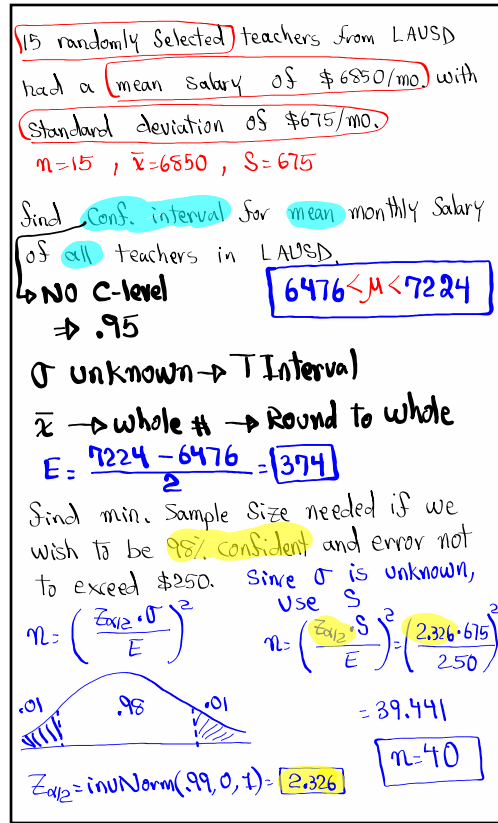 15 randomly Selected teachers from LAUSD
had a mean Salary of $6850/mo. with
Standard deviation of $675/mo.
n=15 , x̄=6850 , S=675
find Conf. interval for mean monthly Salary
of all teachers in LAUSD.
NO C-level
⇒ .95
6476<μ<7224
σ unknown→T Interval
x̄ → Whole # → Round to whole
E = (7224 − 6476)/2 = 374
find min. Sample Size needed if we
wish to be 98% confident and error not
to exceed $250. Since σ is unknown,
use S
n = (Zα/2 · σ / E)²
n = (Zα/2 · S / E)² = (2.326 · 675 / 250)²
.01 .98 .01
= 39.441
n=40
Zα/2 = invNorm(.99, 0, 1) = 2.326